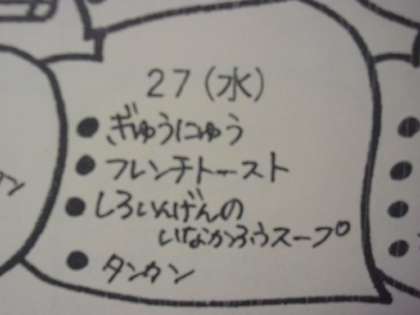 27(水)
ぎゅうにゅう
フレンチトースト
しろいんげんの
いなかふうスープ
タンカン